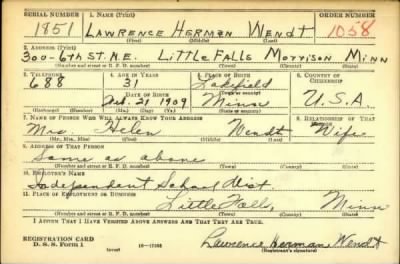 SERIAL NUMBER 1. NAME (Print) ORDER NUMBER
1851 LAWRENCE HERMAN WENDT 1058
(First) (Middle) (Last)
2. ADDRESS (Print)
300-6th ST. N.E. LITTLE FALLS MORRISON MINN
(Number and street or R. F. D. number) (Town) (County) (State)
3. TELEPHONE 4. AGE IN YEARS 5. PLACE OF BIRTH 6. COUNTRY OF CITIZENSHIP
688 31 Lakefield
DATE OF BIRTH (Town or county)
Feb. 21 1909 Minn U.S.A.
(Exchange) (Number) (Mo.) (Day) (Yr.) (State or country)
7. NAME OF PERSON WHO WILL ALWAYS KNOW YOUR ADDRESS 8. RELATIONSHIP OF THAT PERSON
Mrs Helen Wendt Wife
(Mr., Mrs., Miss) (First) (Middle) (Last)
9. ADDRESS OF THAT PERSON
Same as above
(Number and street or R. F. D. number) (Town) (County) (State)
10. EMPLOYER'S NAME
Independent School Dist.
11. PLACE OF EMPLOYMENT OR BUSINESS
Little Falls, Minn
(Number and street or R. F. D. number) (Town) (County) (State)
I AFFIRM THAT I HAVE VERIFIED ABOVE ANSWERS AND THAT THEY ARE TRUE.
REGISTRATION CARD
D. S. S. FORM 1 (over) Lawrence Herman Wendt
(Registrant's signature)